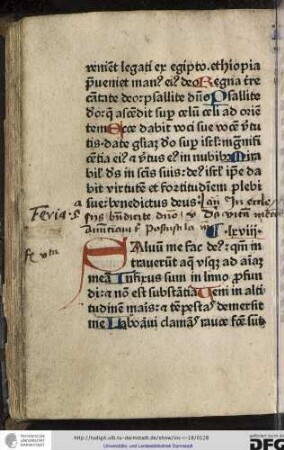 veniẽt legati ex egipto. ethiopia
p̃ueniet man⁹ ei⁹ deo Regna tre
cãtate deo: psallite dño Psallite
deo: q̃ ascẽdit sup̱ celũ celi ad oriẽ
tem Ecce dabit voci sue vocẽ v̓tu
tis: date gl̓iaʒ deo sup̱ isrl̓: magnifi
cẽtia ei⁹ ⁊ v̓tus ei⁹ in nubib⁹ Mira
bil̓ ds̃ in scĩs suis: de⁹ isrl̓ ip̃e da
bit virtutẽ et fortitudinem plebi
sue: bñedictus deus
Feria .5.
lxviij.
Saluũ me fac de⁹: qm̃ in
trauerũt aq̃ vsq̃ʒ ad aĩaʒ
meã Infixus sum in limo profun
di: ⁊ nõ est substãtia Veni in alti
tudinẽ maris: ⁊ tẽpestas demersit
me Laboraui clamãs rauce
http://tudigit.ulb.tu-darmstadt.de/show/inc-ii-18/0128
Universitäts- und Landesbibliothek Darmstadt
TECHNISCHE
UNIVERSITÄT
DARMSTADT
gefördert durch die
DFG